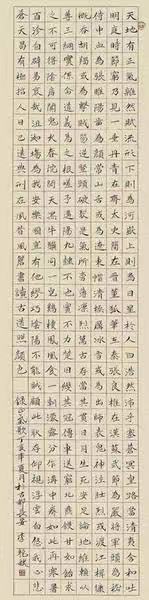 天地有正氣雜然賦流形下則為河嶽上則為日星於人曰浩然沛乎塞蒼冥皇路當清夷含和吐
明庭時窮節乃見一一垂丹青在齊太史簡在晉董狐筆在秦張良椎在漢蘇武節為嚴將軍頭為嵇
侍中血為張睢陽齒為顏常山舌或為遼東帽清操厲冰雪或為出師表鬼神泣壯烈或為渡江楫慷
慨吞胡羯或為擊賊笏逆豎頭破裂是氣所磅礴凜烈萬古存當其貫日月生死安足論地維賴以
尊三綱實係命道義為之根嗟予遘陽九隸也實不力楚囚纓其冠傳車送窮北鼎鑊甘如飴求
之不可得陰房闃鬼火春院閟天黑牛驥同一皂雞棲鳳凰食一朝濛霧露分作溝中瘠如此再寒暑
百沴自辟易哀哉沮洳場為我安樂國豈有他繆巧陰陽不能賊顧此耿耿在仰視浮雲白悠悠我心悲
蒼天曷有極哲人日已遠典刑在夙昔風簷展書讀古道照顏色
錄正氣歌丁亥年夏月於古都長安